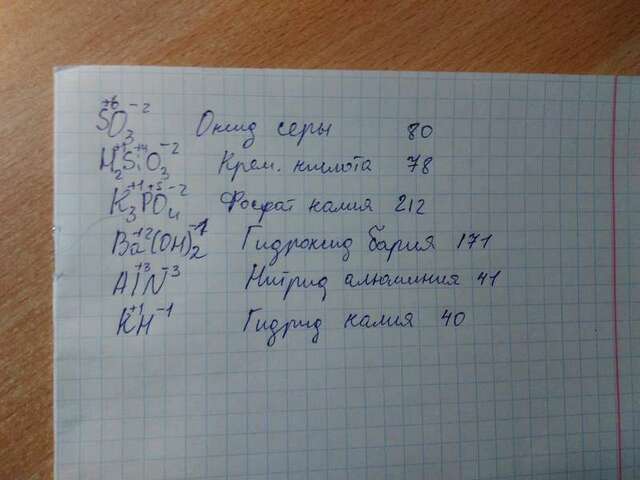 S⁺⁶O₃⁻² Оксид серы 80
H₂⁺¹Si⁺⁴O₃⁻² Крем. кислота 78
K₃⁺¹P⁺⁵O₄⁻² Фосфат калия 212
Ba⁺²(OH)₂⁻¹ Гидроксид бария 171
Al⁺³N⁻³ Нитрид алюминия 41
K⁺¹H⁻¹ Гидрид калия 40